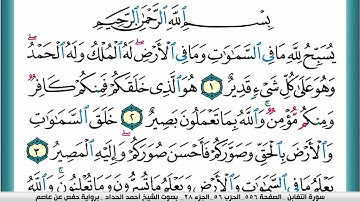 بِسْمِ ٱللَّهِ ٱلرَّحْمَٰنِ ٱلرَّحِيمِ
يُسَبِّحُ لِلَّهِ مَا فِي ٱلسَّمَٰوَٰتِ وَمَا فِي ٱلْأَرْضِۖ لَهُ ٱلْمُلْكُ وَلَهُ ٱلْحَمْدُۖ
وَهُوَ عَلَىٰ كُلِّ شَيْءٍ قَدِيرٌ ١ هُوَ ٱلَّذِي خَلَقَكُمْ فَمِنكُمْ كَافِرٌ
وَمِنكُم مُّؤْمِنٌۚ وَٱللَّهُ بِمَا تَعْمَلُونَ بَصِيرٌ ٢ خَلَقَ ٱلسَّمَٰوَٰتِ
وَٱلْأَرْضَ بِٱلْحَقِّ وَصَوَّرَكُمْ فَأَحْسَنَ صُوَرَكُمْۖ وَإِلَيْهِ ٱلْمَصِيرُ ٣
يَعْلَمُ مَا فِي ٱلسَّمَٰوَٰتِ وَٱلْأَرْضِ وَيَعْلَمُ مَا تُسِرُّونَ وَمَا تُعْلِنُونَۚ وَٱللَّهُ
سورة التغابن . الصفحة ٥٥٦ . الحزب ٥٦ . الجزء ٢٨ . بصوت الشيخ أحمد الحداد . برواية حفص عن عاصم